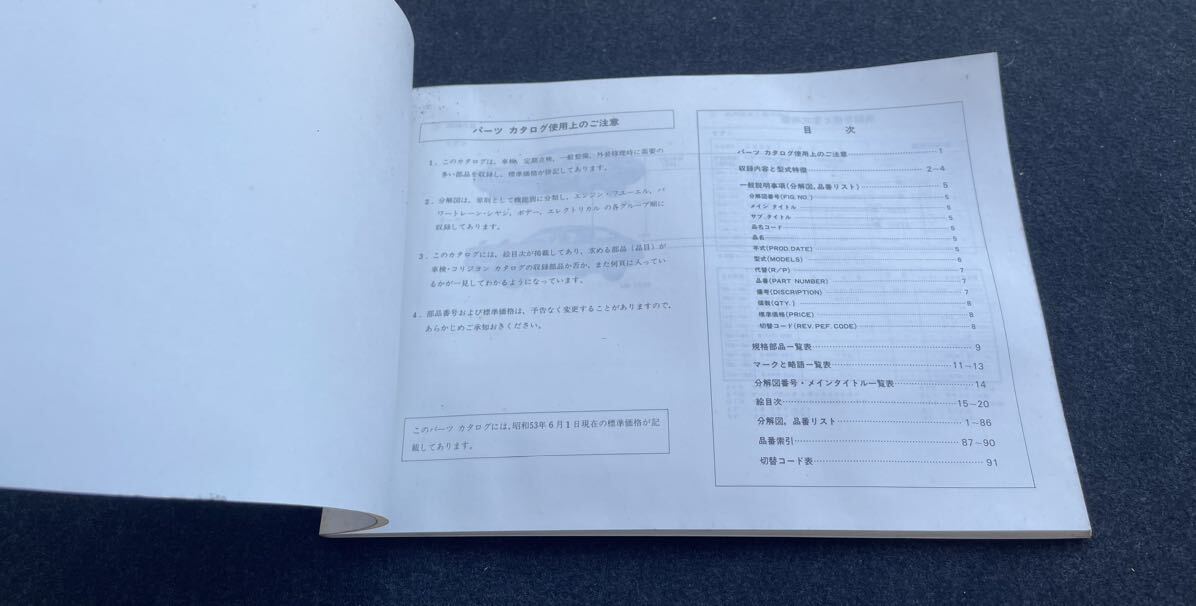 パーツ カタログ使用上のご注意
1. このカタログは、車検、定期点検、一般整備、外装修理時に需要の
多い部品を収録し、標準価格が併記してあります。
2. 分解図は、原則として機能別に分類し、エンジン・フユーエル、パ
ワートレーン・シヤシ、ボデー、エレクトリカル の各グループ順に
収録してあります。
3. このカタログには、絵目次が掲載してあり、求める部品（品目）が
車検・コリジヨン カタログの収録部品か否か、また何頁に入ってい
るかが一見してわかるようになっています。
4. 部品番号および標準価格は、予告なく変更することがありますので、
あらかじめご承知おきください。
このパーツ カタログには、昭和53年6月1日現在の標準価格が記
載してあります。
目 次
パーツ カタログ使用上のご注意 1
収録内容と型式特徴 2~4
一般説明事項(分解図,品番リスト) 5
分解図番号(FIG. NO.) 5
メイン タイトル 5
サブ タイトル 5
品名コード 5
品名 5
年式(PROD. DATE) 5
型式(MODELS) 6
代替(R/P) 7
品番(PART NUMBER) 7
備考(DISCRIPTION) 7
個数(QTY.) 8
標準価格(PRICE) 8
切替コード(REV. PEF. CODE) 8
規格部品一覧表 9
マークと略語一覧表 11~13
分解図番号・メインタイトル一覧表 14
絵目次 15~20
分解図,品番リスト 1~86
品番索引 87~90
切替コード表 91